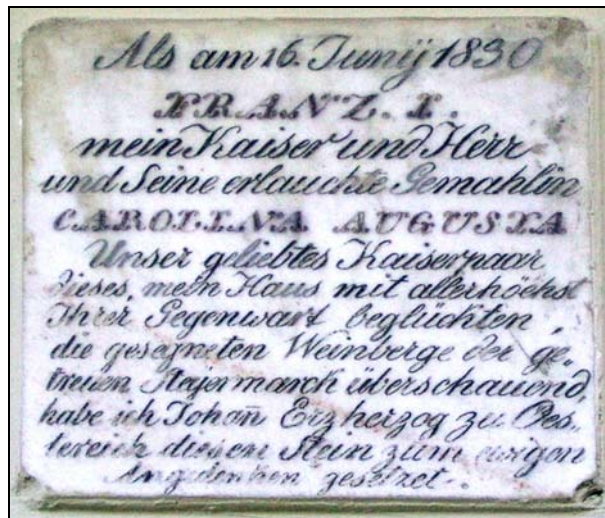 Als am 16. Junÿ 1830
FRANZ. I.
mein Kaiser und Herr
und Seine erlauchte Gemahlin
CAROLINA AUGUSTA
Unser geliebtes Kaiserpaar
dieses, mein Haus mit allerhöchst
Ihrer Gegenwart beglückten,
die gesegneten Weinberge der ge„
treuen Steyermarck überschauend,
habe ich Johan̄ Erzherzog zu Oes„
terreich diesen Stein zum ewigen
Angedenken gesetzet.